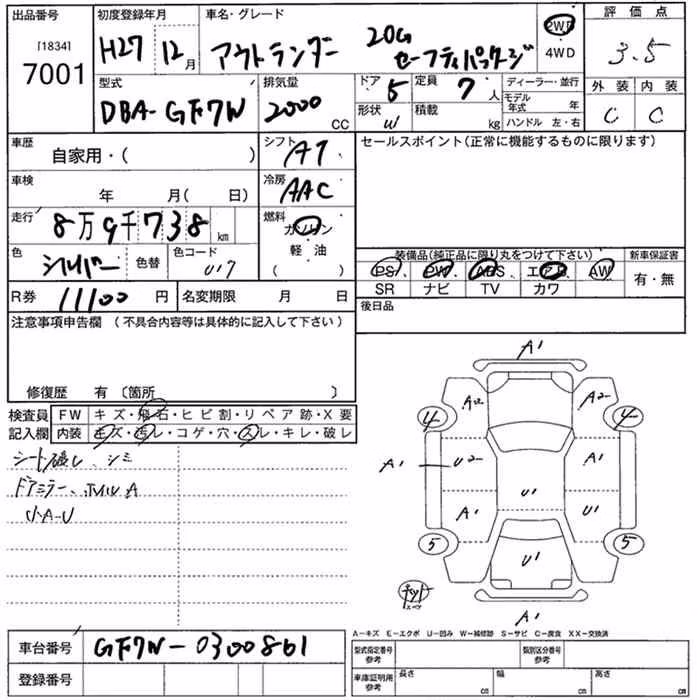 出品番号 [1834] 7001
初度登録年月 H27 12月
車名・グレード アウトランダー 20G セーフティパッケージ
2WD 4WD
評価点 3.5
外装 内装
C C
型式 DBA-GF7W
排気量 2000 CC
ドア 5 定員 7人
形状 W 積載 kg
ディーラー・並行
モデル年式 年
ハンドル 左・右
車歴 自家用・( )
シフト AT
セールスポイント(正常に機能するものに限ります)
車検 年 月( 日)
冷房 AAC
走行 8万9千738km
燃料 ガソリン
軽・油
( )
色 シルバー 色替 色コード U17
装備品(純正品に限り丸をつけて下さい) 新車保証書
PS PW ABS エアB AW 有・無
SR ナビ TV カワ
R券 11100円 名変期限 月 日
後日品
注意事項申告欄(不具合内容等は具体的に記入して下さい)
修復歴 有 〔箇所 〕
検査員記入欄
FW キズ・飛石・ヒビ割・リペア跡・X要
内装 キズ・汚レ・コゲ・穴・スレ・キレ・破レ
シート破レ、シミ
ドアミラー、
小A-U
A1
A2 A2
4 4
A1 U2 A1
A1 U1 U1
5 5
U1
A1
A-キズ E-エクボ U-凹み W-補修跡 S-サビ C-腐食 XX-交換済
車台番号 GF7W-0300861
登録番号
型式指定番号 参考 類別区分番号 参考
車庫証明用 参考 長さ cm 幅 cm 高さ cm